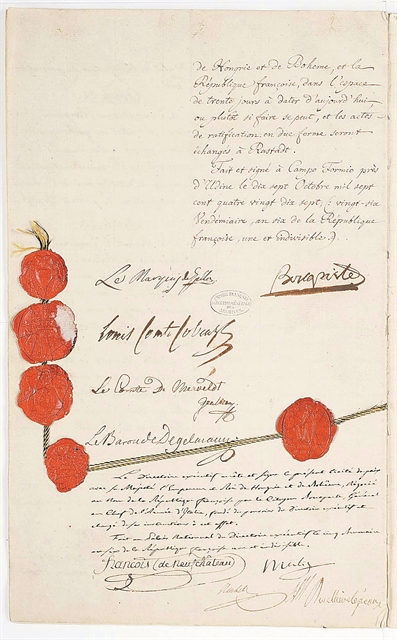 de Hongrie et de Boheme, et la
République françoise, dans l'espace
de trente jours à dater d'aujourd'hui,
ou plutôt si faire se peut, et les actes
de ratification en due forme seront
échangés à Rastadt.
Fait et signé à Campo Formio près
d'Udine le dix sept Octobre mil sept
cent quatre vingt dix sept, (: vingt-six
Vendémiaire, an six de la République
françoise, une et indivisible.)
Le Marquis de Gallo
Bonaparte
Louis Comte Cobenzl
Le Comte de Merveldt
Le Baron de Degelmann
Le Directoire exécutif arrête et signe le présent traité de paix
avec Sa Majesté l'Empereur et Roi de Hongrie et de Bohême, Négocié
au Nom de la République française par le Citoyen Bonaparte, Général
en Chef de l'Armée d'Italie, fondé de pouvoirs du Directoire exécutif et
chargé de ses instructions à cet effet.
Fait au Palais National du Directoire exécutif le cinq Brumaire
an six de la République française une et indivisible.
François (de neufchâteau) Merlin